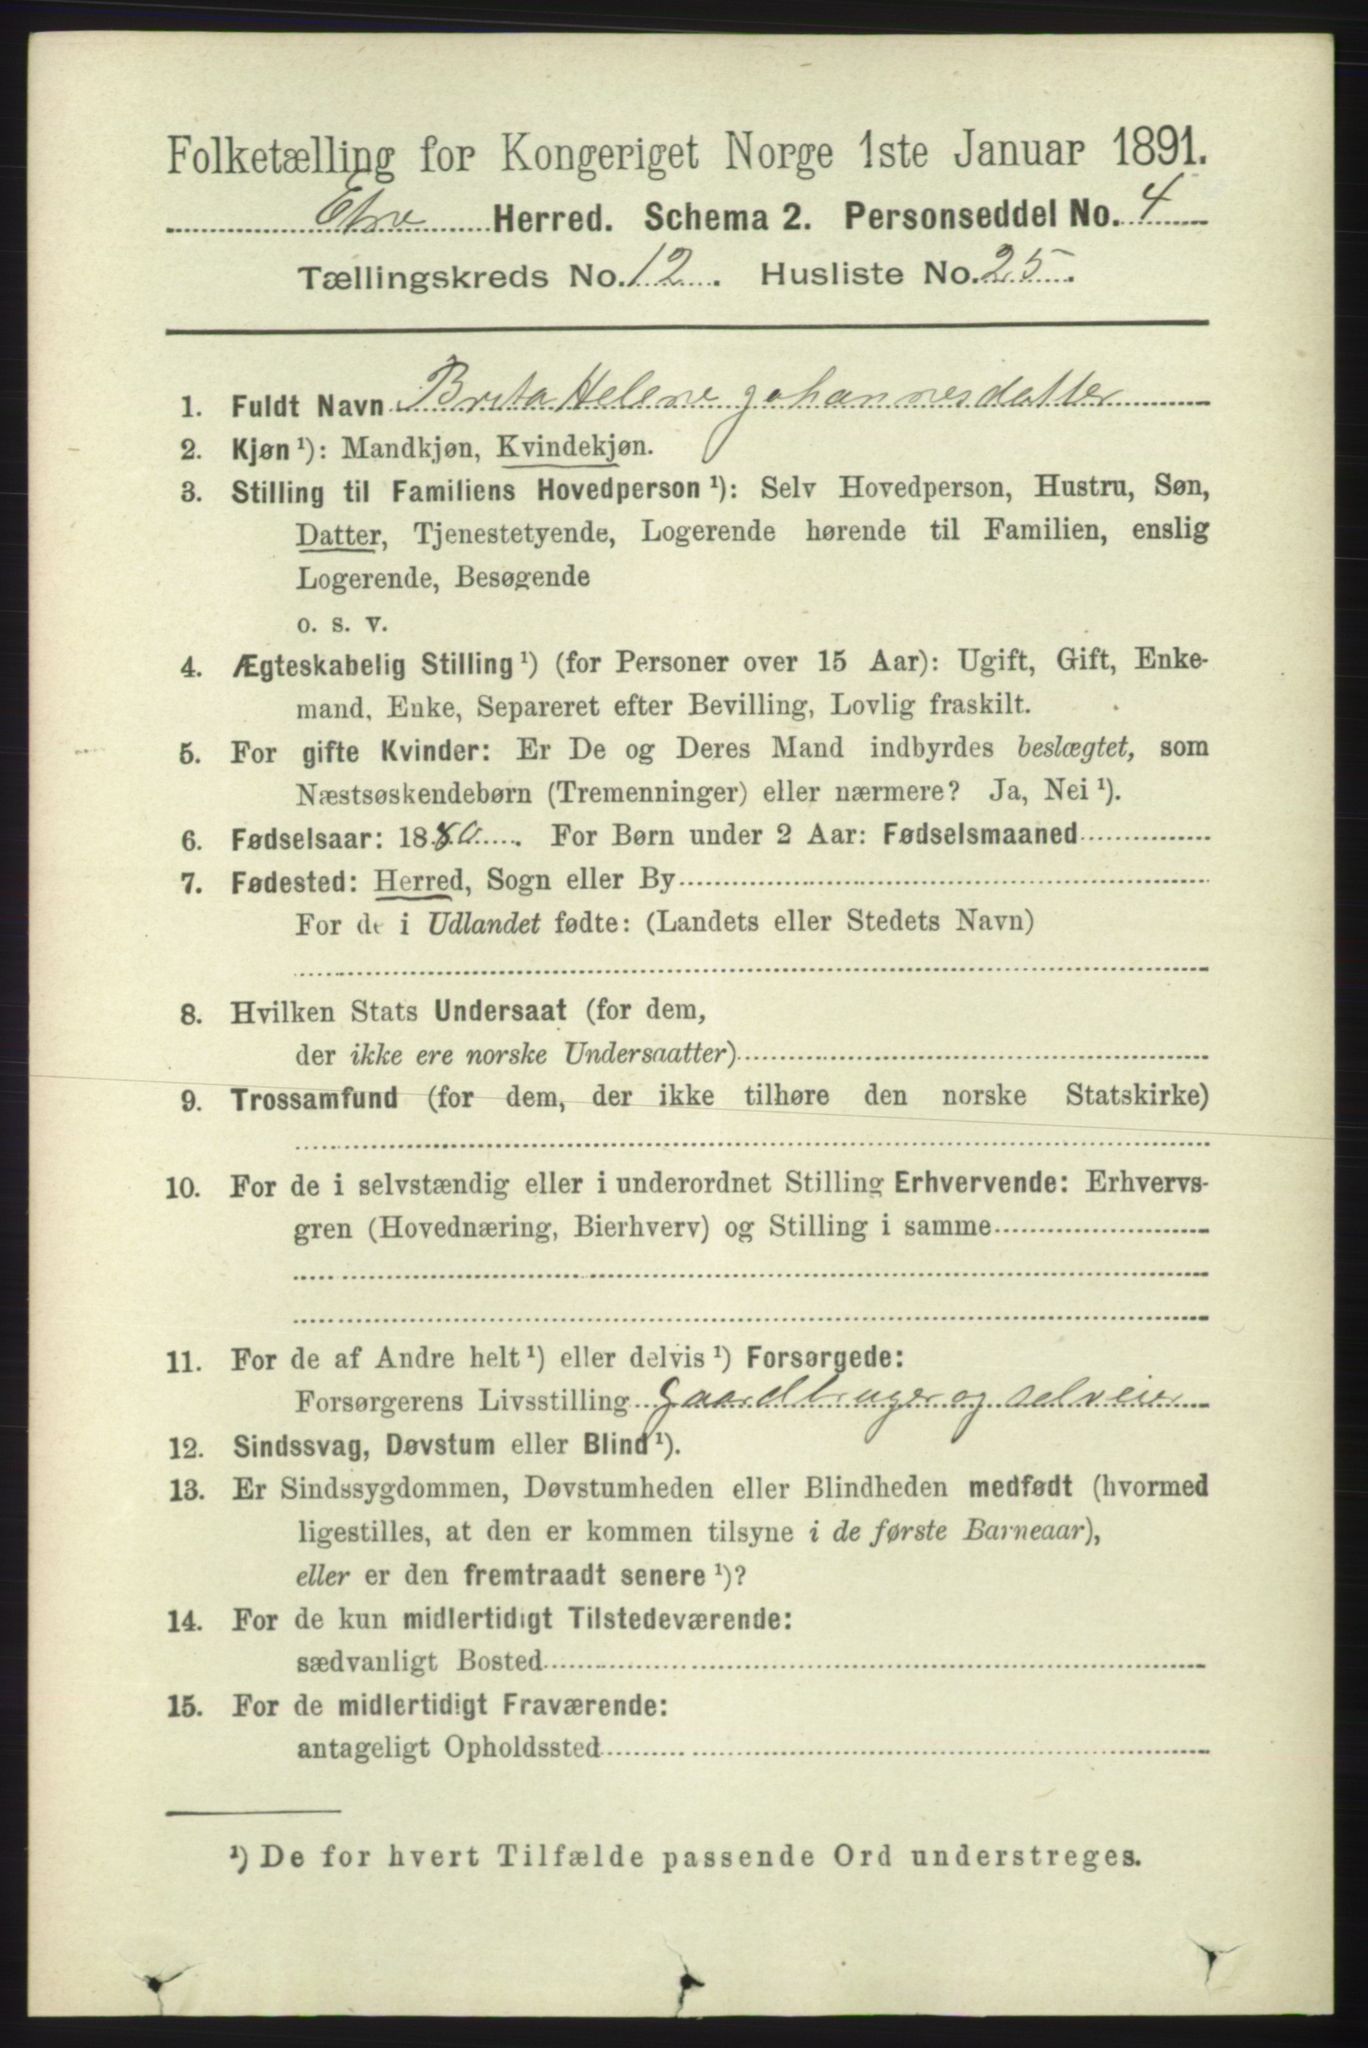 Folketælling for Kongeriget Norge 1ste Januar 1891.
Etne Herred. Schema 2. Personseddel No. 4
Tællingskreds No. 12. Husliste No. 25.
1. Fuldt Navn Brita Helene Johannesdatter
2. Kjøn ¹): Mandkjøn, Kvindekjøn.
3. Stilling til Familiens Hovedperson ¹): Selv Hovedperson, Hustru, Søn,
Datter, Tjenestetyende, Logerende hørende til Familien, enslig
Logerende, Besøgende
o. s. v.
4. Ægteskabelig Stilling ¹) (for Personer over 15 Aar): Ugift, Gift, Enke-
mand, Enke, Separeret efter Bevilling, Lovlig fraskilt.
5. For gifte Kvinder: Er De og Deres Mand indbyrdes beslægtet, som
Næstsøskendebørn (Tremenninger) eller nærmere? Ja, Nei ¹).
6. Fødselsaar: 1880. For Børn under 2 Aar: Fødselsmaaned
7. Fødested: Herred, Sogn eller By
For de i Udlandet fødte: (Landets eller Stedets Navn)
8. Hvilken Stats Undersaat (for dem,
der ikke ere norske Undersaatter)
9. Trossamfund (for dem, der ikke tilhøre den norske Statskirke)
10. For de i selvstændig eller i underordnet Stilling Erhvervende: Erhvervs-
gren (Hovednæring, Bierhverv) og Stilling i samme
11. For de af Andre helt ¹) eller delvis ¹) Forsørgede:
Forsørgerens Livsstilling Gaardbruger og selveier
12. Sindssvag, Døvstum eller Blind ¹).
13. Er Sindssygdommen, Døvstumheden eller Blindheden medfødt (hvormed
ligestilles, at den er kommen tilsyne i de første Barneaar),
eller er den fremtraadt senere ¹)?
14. For de kun midlertidigt Tilstedeværende:
sædvanligt Bosted
15. For de midlertidigt Fraværende:
antageligt Opholdssted
¹) De for hvert Tilfælde passende Ord understreges.